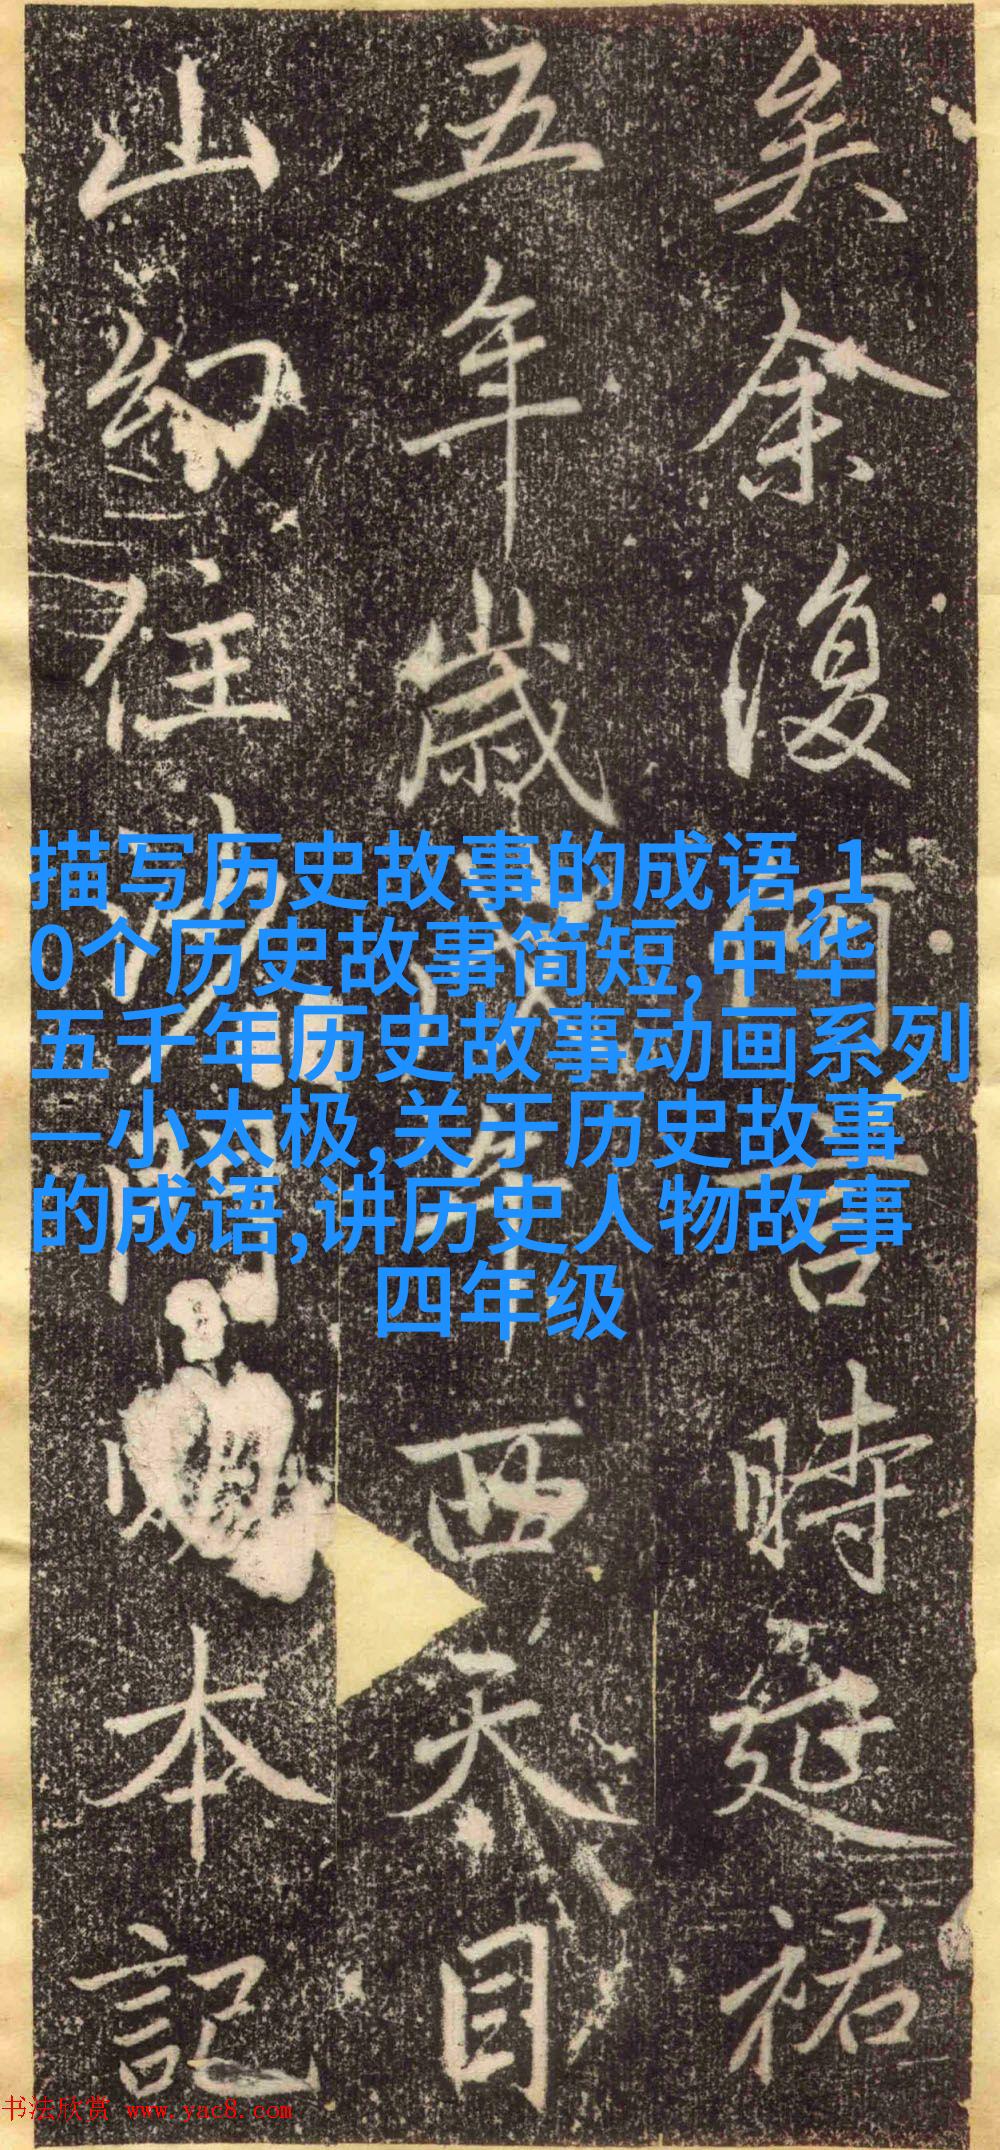 矣余復何言時延祐
五年歲戊午西天目
山幻住沙門本記
描写历史故事的成语,1
0个历史故事简短,中华
五千年历史故事动画系列
—小太极,关于历史故事
的成语,讲历史人物故事
四年级
书法欣赏 www.yac8.com